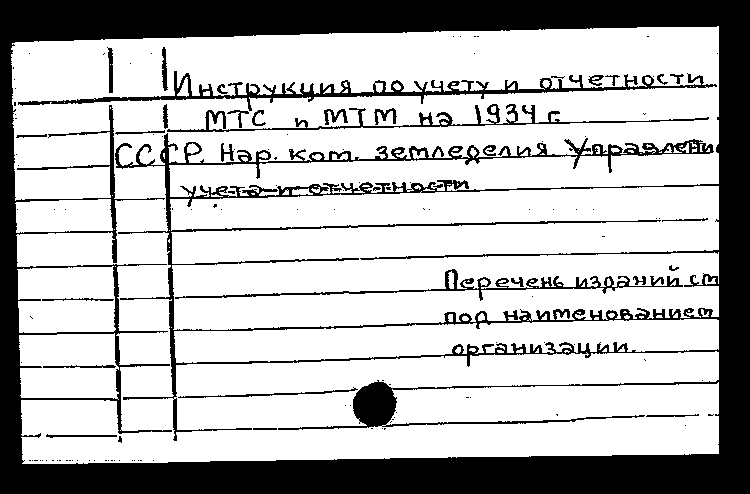 Инструкция по учету и отчетности
МТС и МТМ на 1934 г.
СССР. Нар. ком. земледелия Управлени
учета и отчетности
Перечень изданий см
под наименованием
организации.